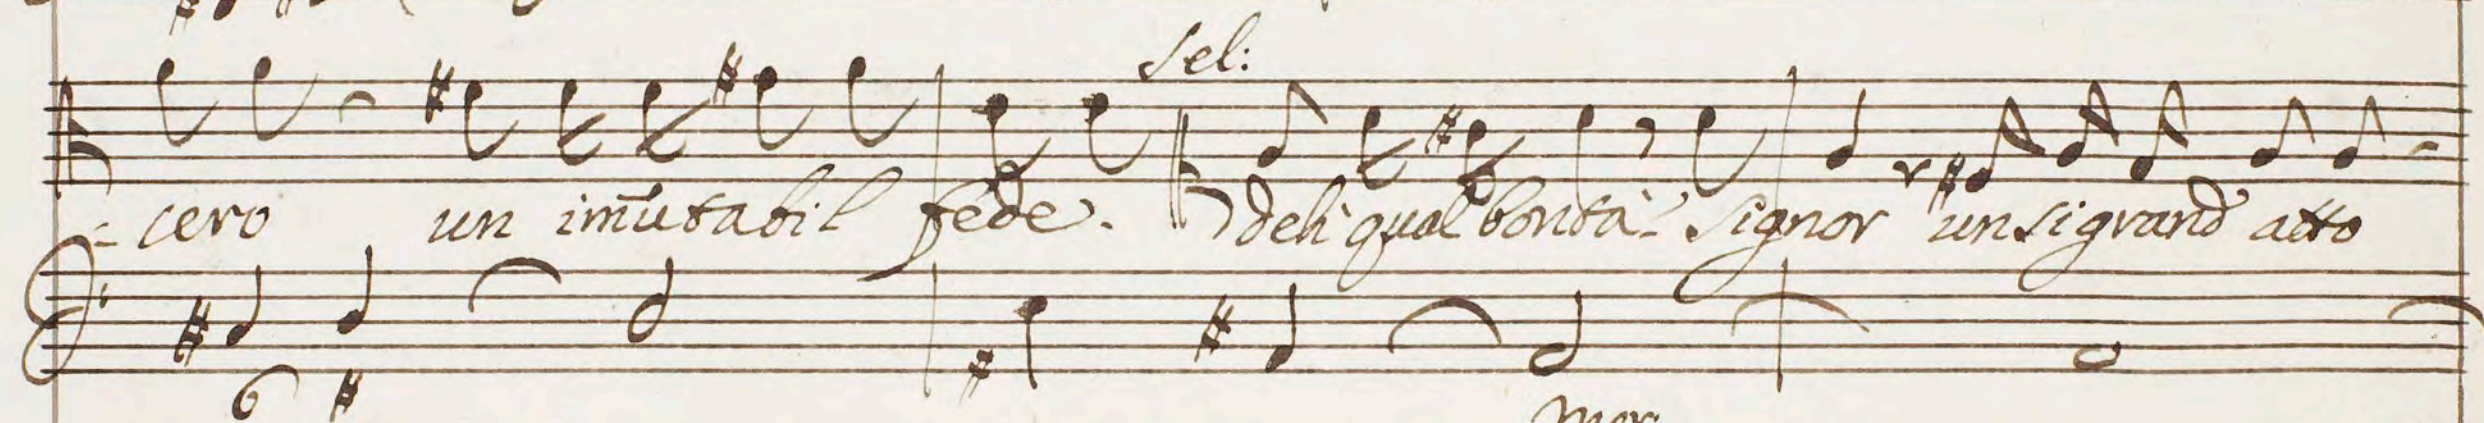 Sel:
=cero un im̄utabil fede. deh qual bontà Signor un si grand atto
6